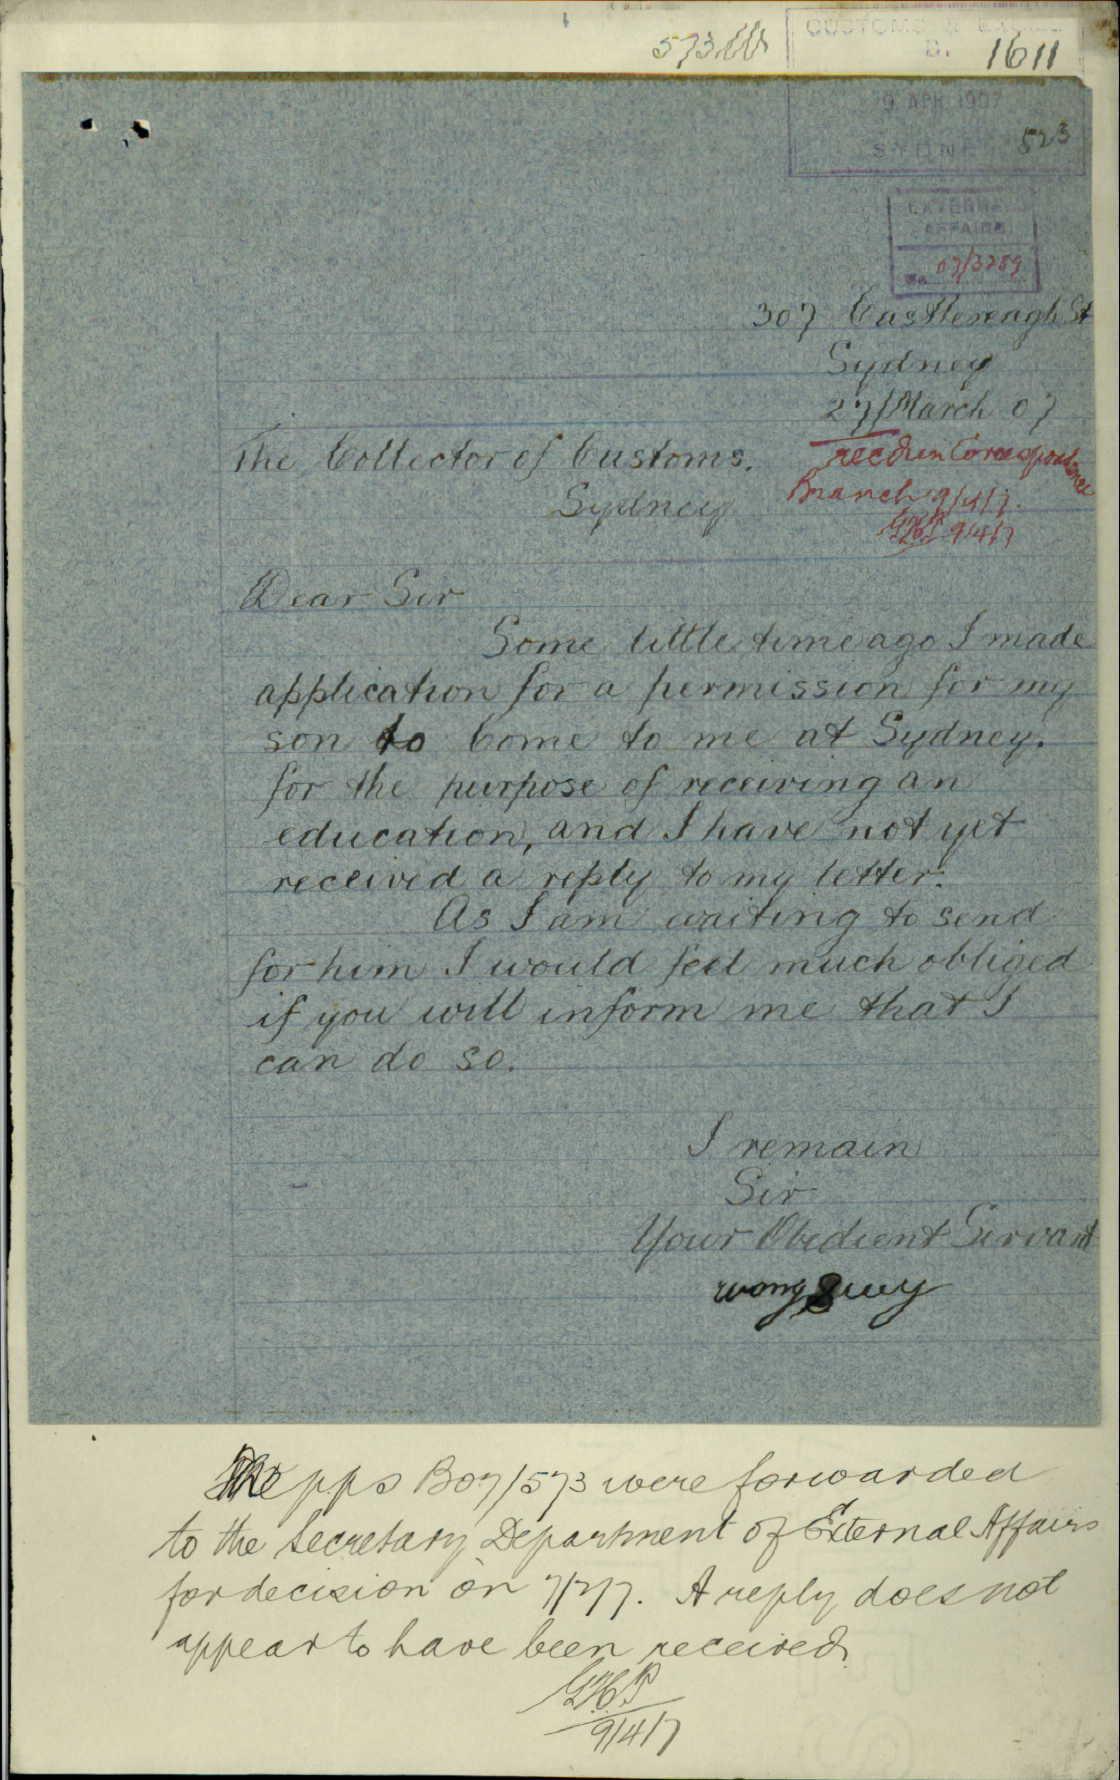 573
CUSTOMS &
B. 1611
9 APR 1907
523
SYDNEY
EXTERNAL
AFFAIRS
No 07/3289
307 Castlereagh St
Sydney
27/March 07
The Collector of Customs.
Sydney
recd in Correspondence
Branch 9/4/7.
GHP 9/4/7
Dear Sir
Some little time ago I made
application for a permission for my
son to Come to me at Sydney.
for the purpose of receiving an
education, and I have not yet
received a reply to my letter.
As I am waiting to send
for him I would feel much obliged
if you will inform me that I
can do so.
I remain
Sir
Your Obedient Servant
wong
The pps B07/573 were forwarded
to the Secretary Department of External Affairs
for decision on 7/2/7. A reply does not
appear to have been received.
GHP
9/4/7